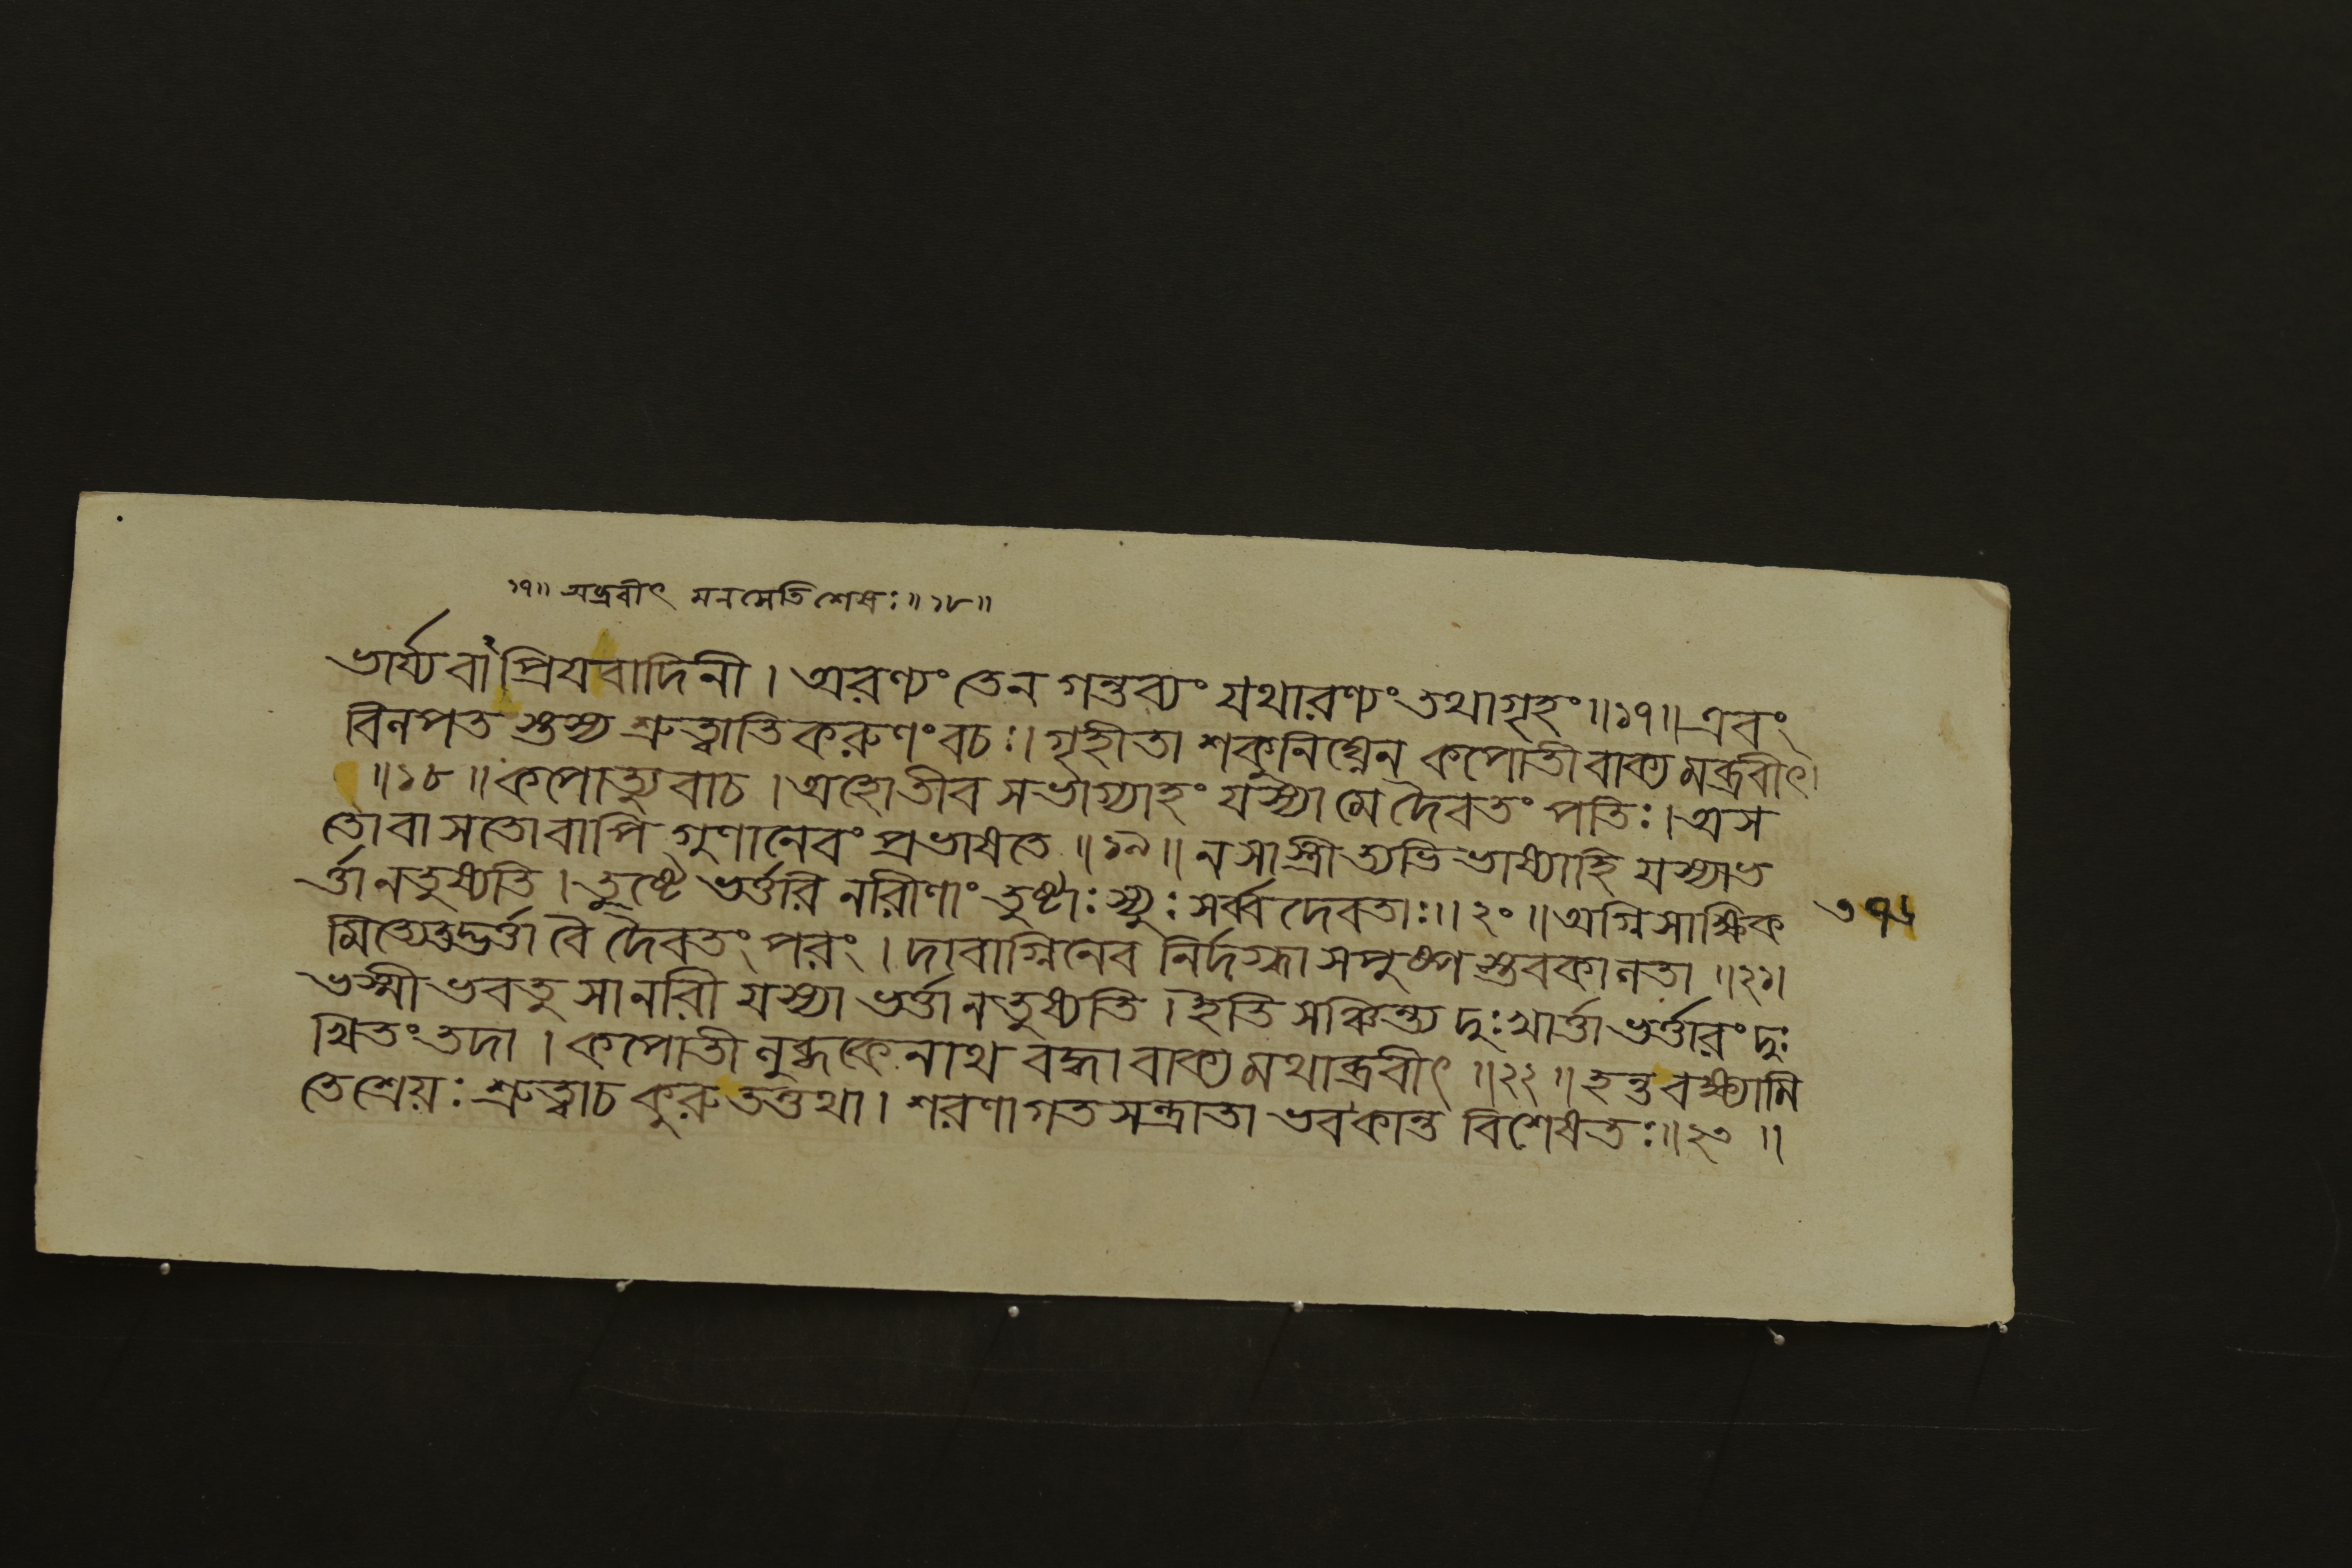 ১৭॥ অব্রবীৎ মনসেতি শেষঃ॥১৮॥
ভার্য্যবাঁ প্রিযবাদিনী। অরণ্যং তেন গন্তব্যং যথারণ্যং তথাগৃহং॥১৭॥এবং
বিলপত স্তস্য শ্রুত্বাতি করুণং বচঃ। গৃহীতা শকুনিঘ্নেন কপোতী বাক্য মব্রবীৎ।
॥১৮॥ কপোত্যু বাচ। অহোতীব সভাগ্যাহং যস্যা মে দৈবতং পতিঃ। অস
তোবা সতোবাপি গুণানেবং প্রভাষতে॥১৯॥ন সা স্ত্রী ত্যভি ভাষ্যাহি যস্যাভ
র্ত্তা ন তুষ্যতি। তুষ্টে ভর্ত্তরি নরীণাং তুষ্টাঃ স্যুঃ সর্ব্ব দেবতাঃ॥২০॥অগ্নি সাক্ষিক
মিত্যেতদ্ভর্ত্তা বৈ দৈবতং পরং। দাবাগ্নিনেব নির্দগ্ধা সপুষ্প স্তবকা লতা॥২১।
ভস্মী ভবতু সা নরী যস্যা ভর্ত্তা ন তুষ্যতি। ইতি সঞ্চিন্ত্য দুঃখার্ত্তা ভর্ত্তারং দুঃ
খিতং তদা। কপোতী লুব্ধকে নাথ বদ্ধা বাক্য মথাব্রবীৎ॥২২॥হন্ত বক্ষ্যামি
তে শ্রেয়ঃ শ্রুত্বাচ কুরু তত্তথা। শরণাগত সন্ত্রাতা ভব কান্ত বিশেষতঃ॥২৩॥